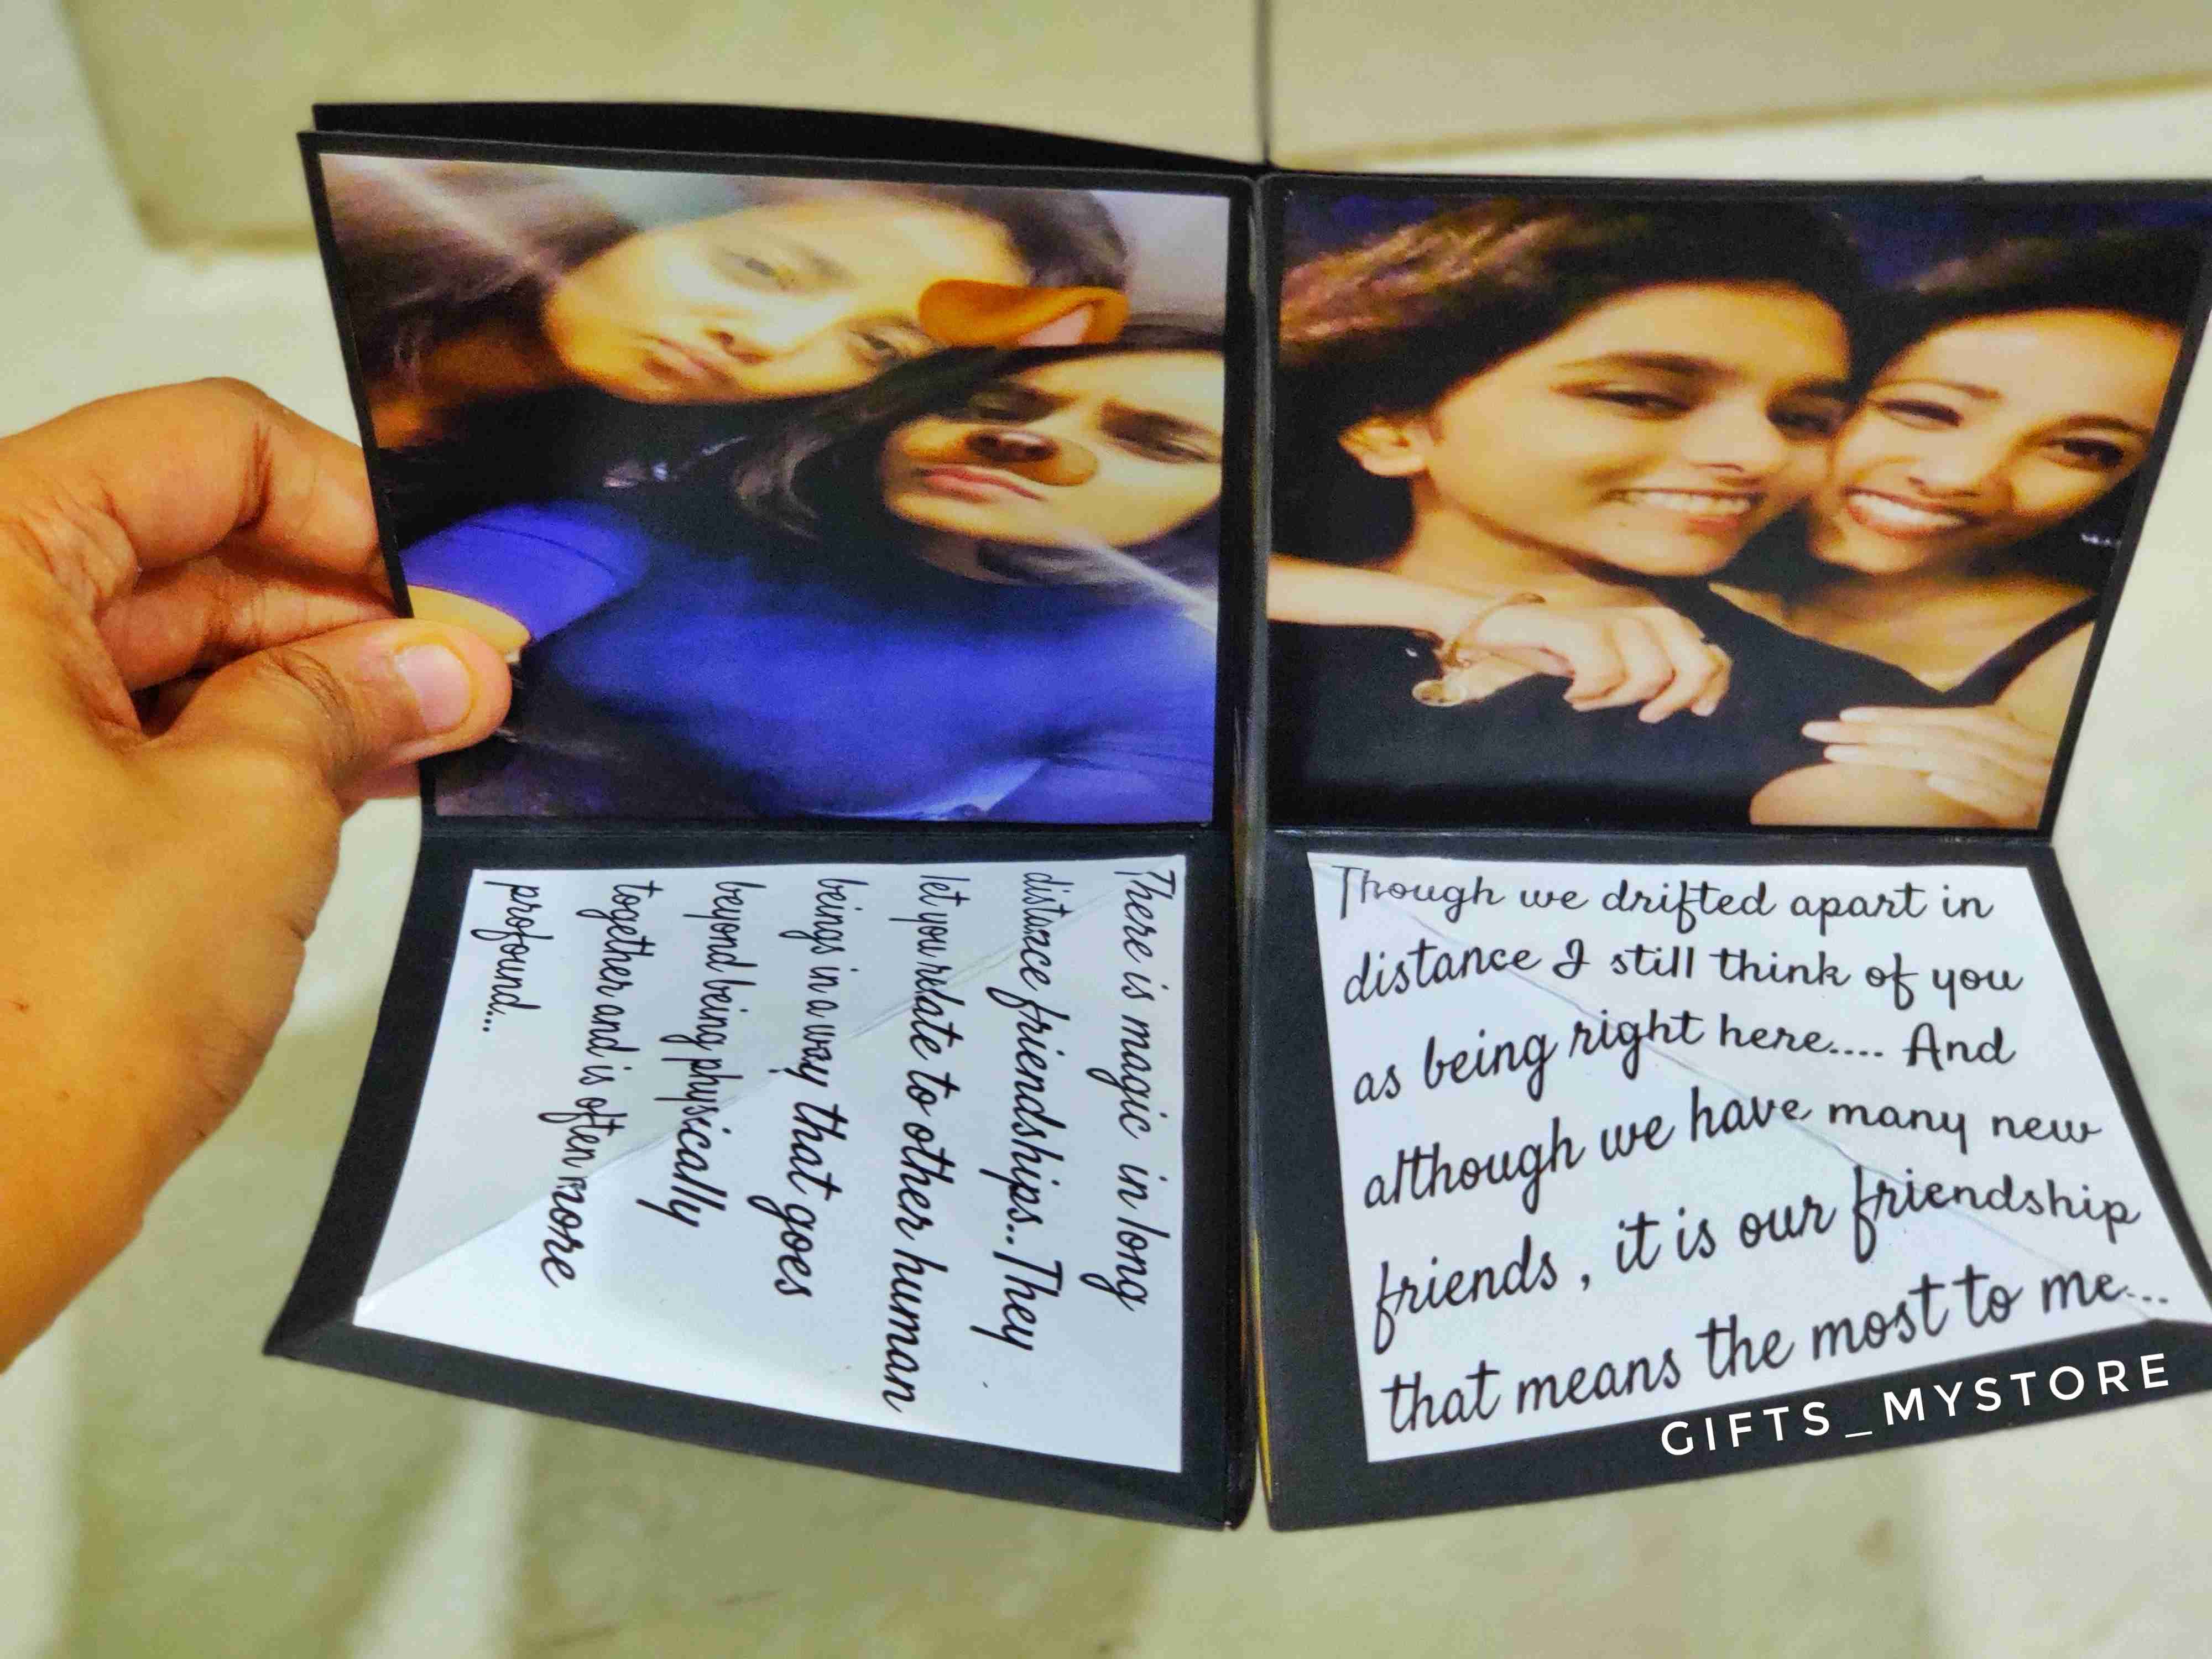 There is magic in long
distance friendships.. They
let you relate to other human
beings in a way that goes
beyond being physically
together and is often more
profound...
Though we drifted apart in
distance I still think of you
as being right here.... And
although we have many new
friends, it is our friendship
that means the most to me...
GIFTS_MYSTORE